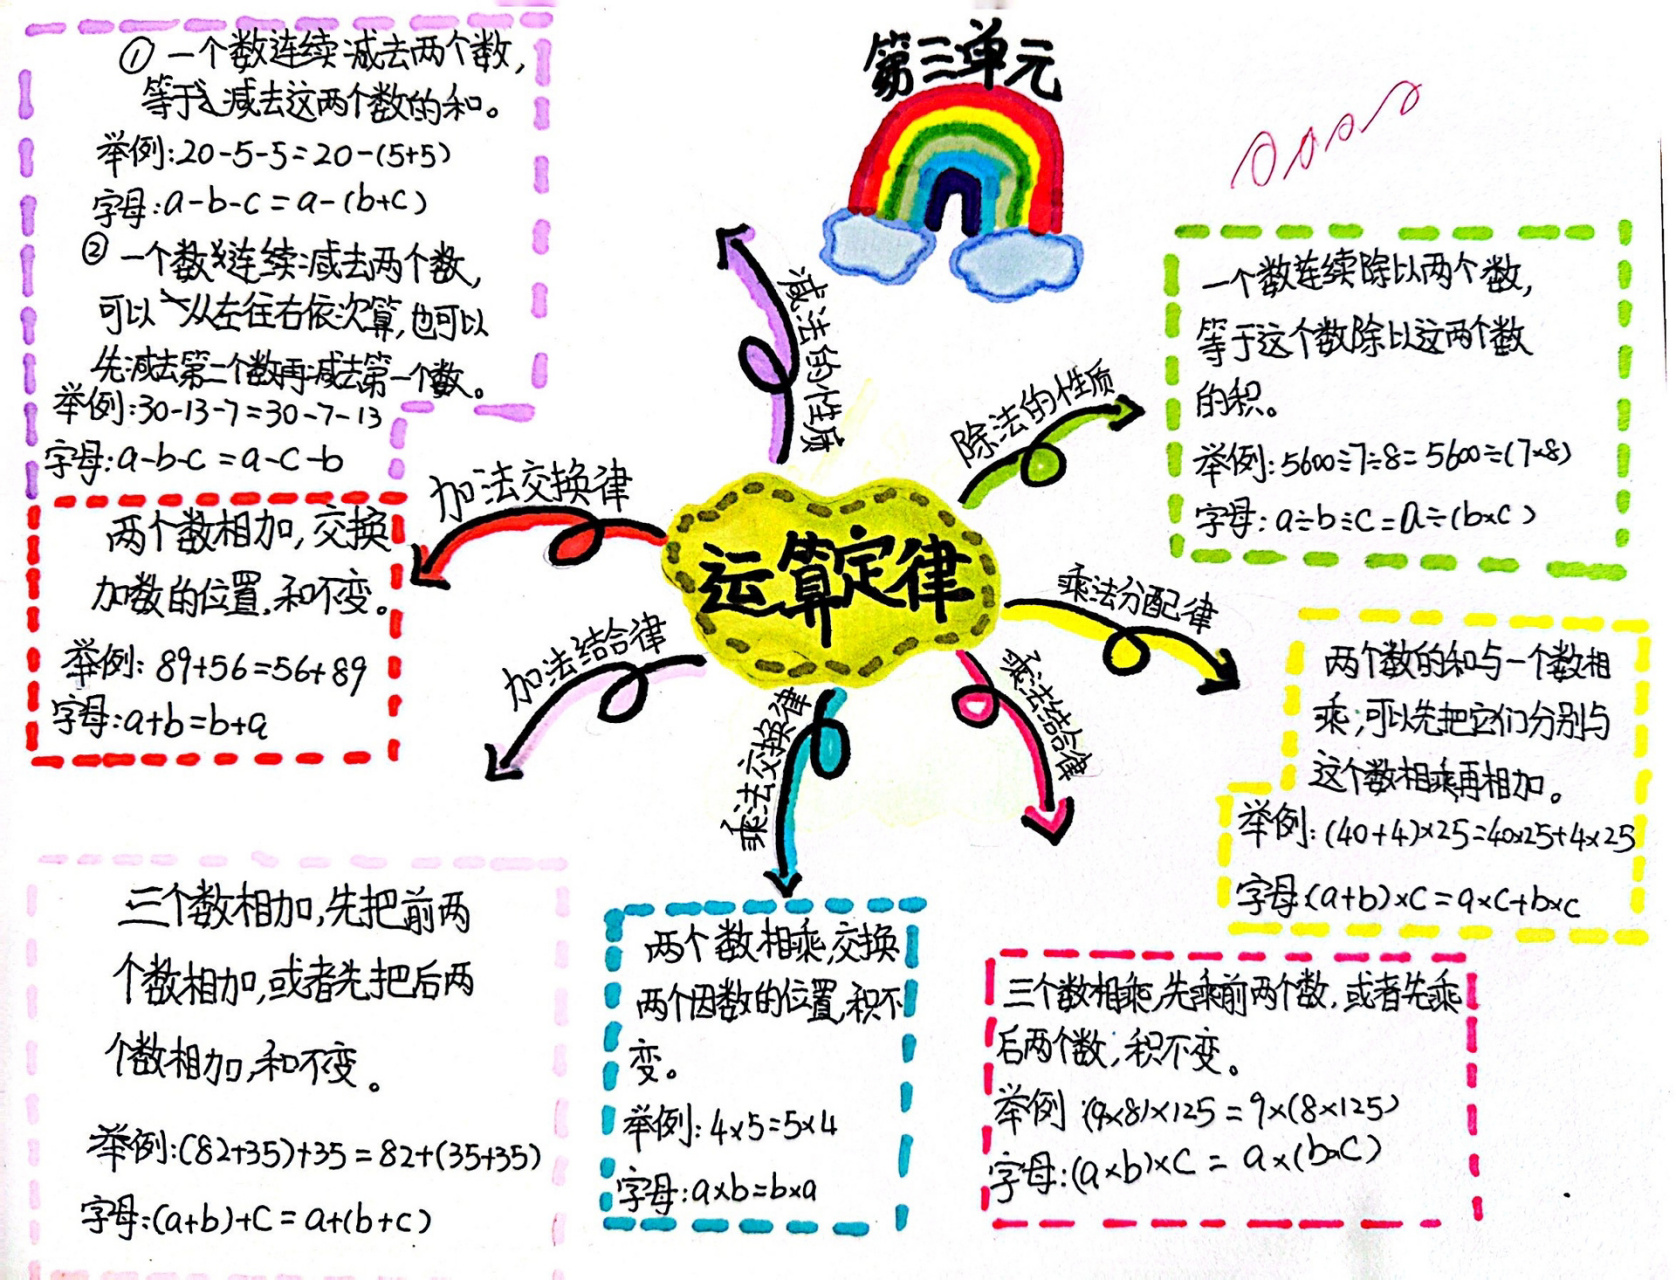 第三单元
①一个数连续减去两个数,
等于减去这两个数的和。
举例:20-5-5=20-(5+5)
字母:a-b-c=a-(b+c)
②一个数连续减去两个数,
可以从左往右依次算,也可以
先减去第二个数再减去第一个数。
举例:30-13-7=30-7-13
字母:a-b-c=a-c-b
减法的性质
除法的性质
一个数连续除以两个数,
等于这个数除以这两个数
的积。
举例:5600÷7÷8=5600÷(7×8)
字母:a÷b÷c=a÷(b×c)
加法交换律
两个数相加,交换
加数的位置,和不变。
举例:89+56=56+89
字母:a+b=b+a
运算定律
乘法分配律
两个数的和与一个数相
乘,可以先把它们分别与
这个数相乘再相加。
举例:(40+4)×25=40×25+4×25
字母:(a+b)×c=a×c+b×c
加法结合律
三个数相加,先把前两
个数相加,或者先把后两
个数相加,和不变。
举例:(82+35)+35=82+(35+35)
字母:(a+b)+c=a+(b+c)
乘法交换律
两个数相乘,交换
两个因数的位置,积不
变。
举例:4×5=5×4
字母:a×b=b×a
乘法结合律
三个数相乘,先乘前两个数,或者先乘
后两个数,积不变。
举例:(9×8)×125=9×(8×125)
字母:(a×b)×c=a×(b×c)